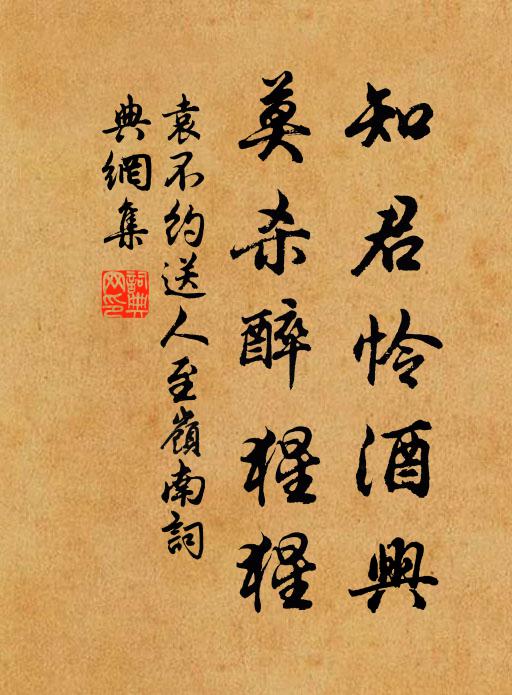 知君怜酒興
莫杀醉猩猩
袁不約送人至嶺南詞
典網集
詞典
网印